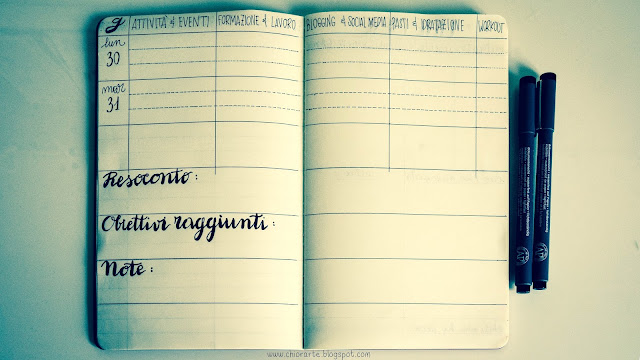 g ATTIVITA' & EVENTI FORMAZIONE & LAVORO BLOGGING & SOCIAL MEDIA PASTI & IDRATAZIONE WORKOUT
lun
30
mar
31
Resoconto:
Obiettivi raggiunti:
Note:
www.chiorarte.blogspot.com